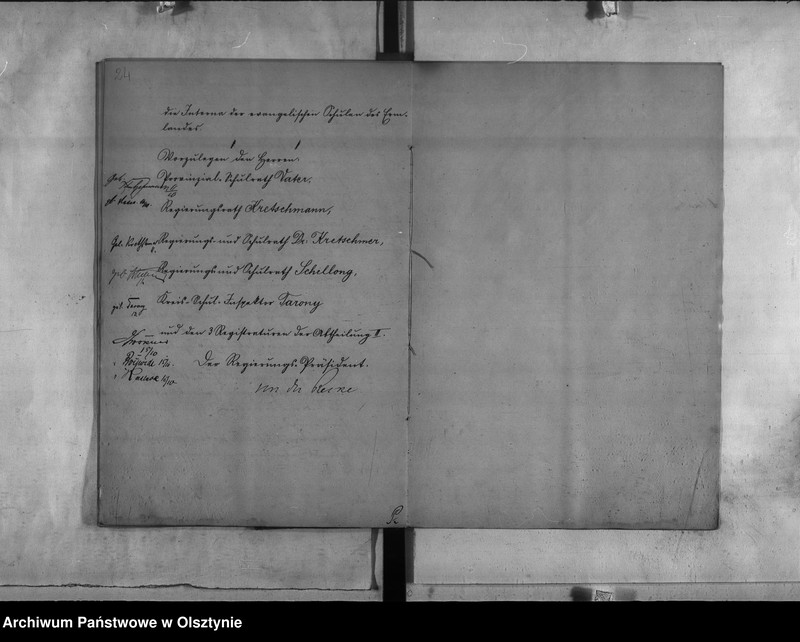 24
die Interna der evangelischen Schulen des Erm-
landes.
Vorzulegen den Herren
Provinzial-Schulrath Vater,
Regierungsrath Kretschmann,
Regierungs- und Schulrath Dr. Kretschmer,
Regierungs- und Schulrath Schellong,
Kreis-Schul-Inspektor Tarony
und den 3 Registraturen der Abtheilung II.
15/10
Der Regierungs-Präsident.
von der Recke
Archiwum Państwowe w Olsztynie